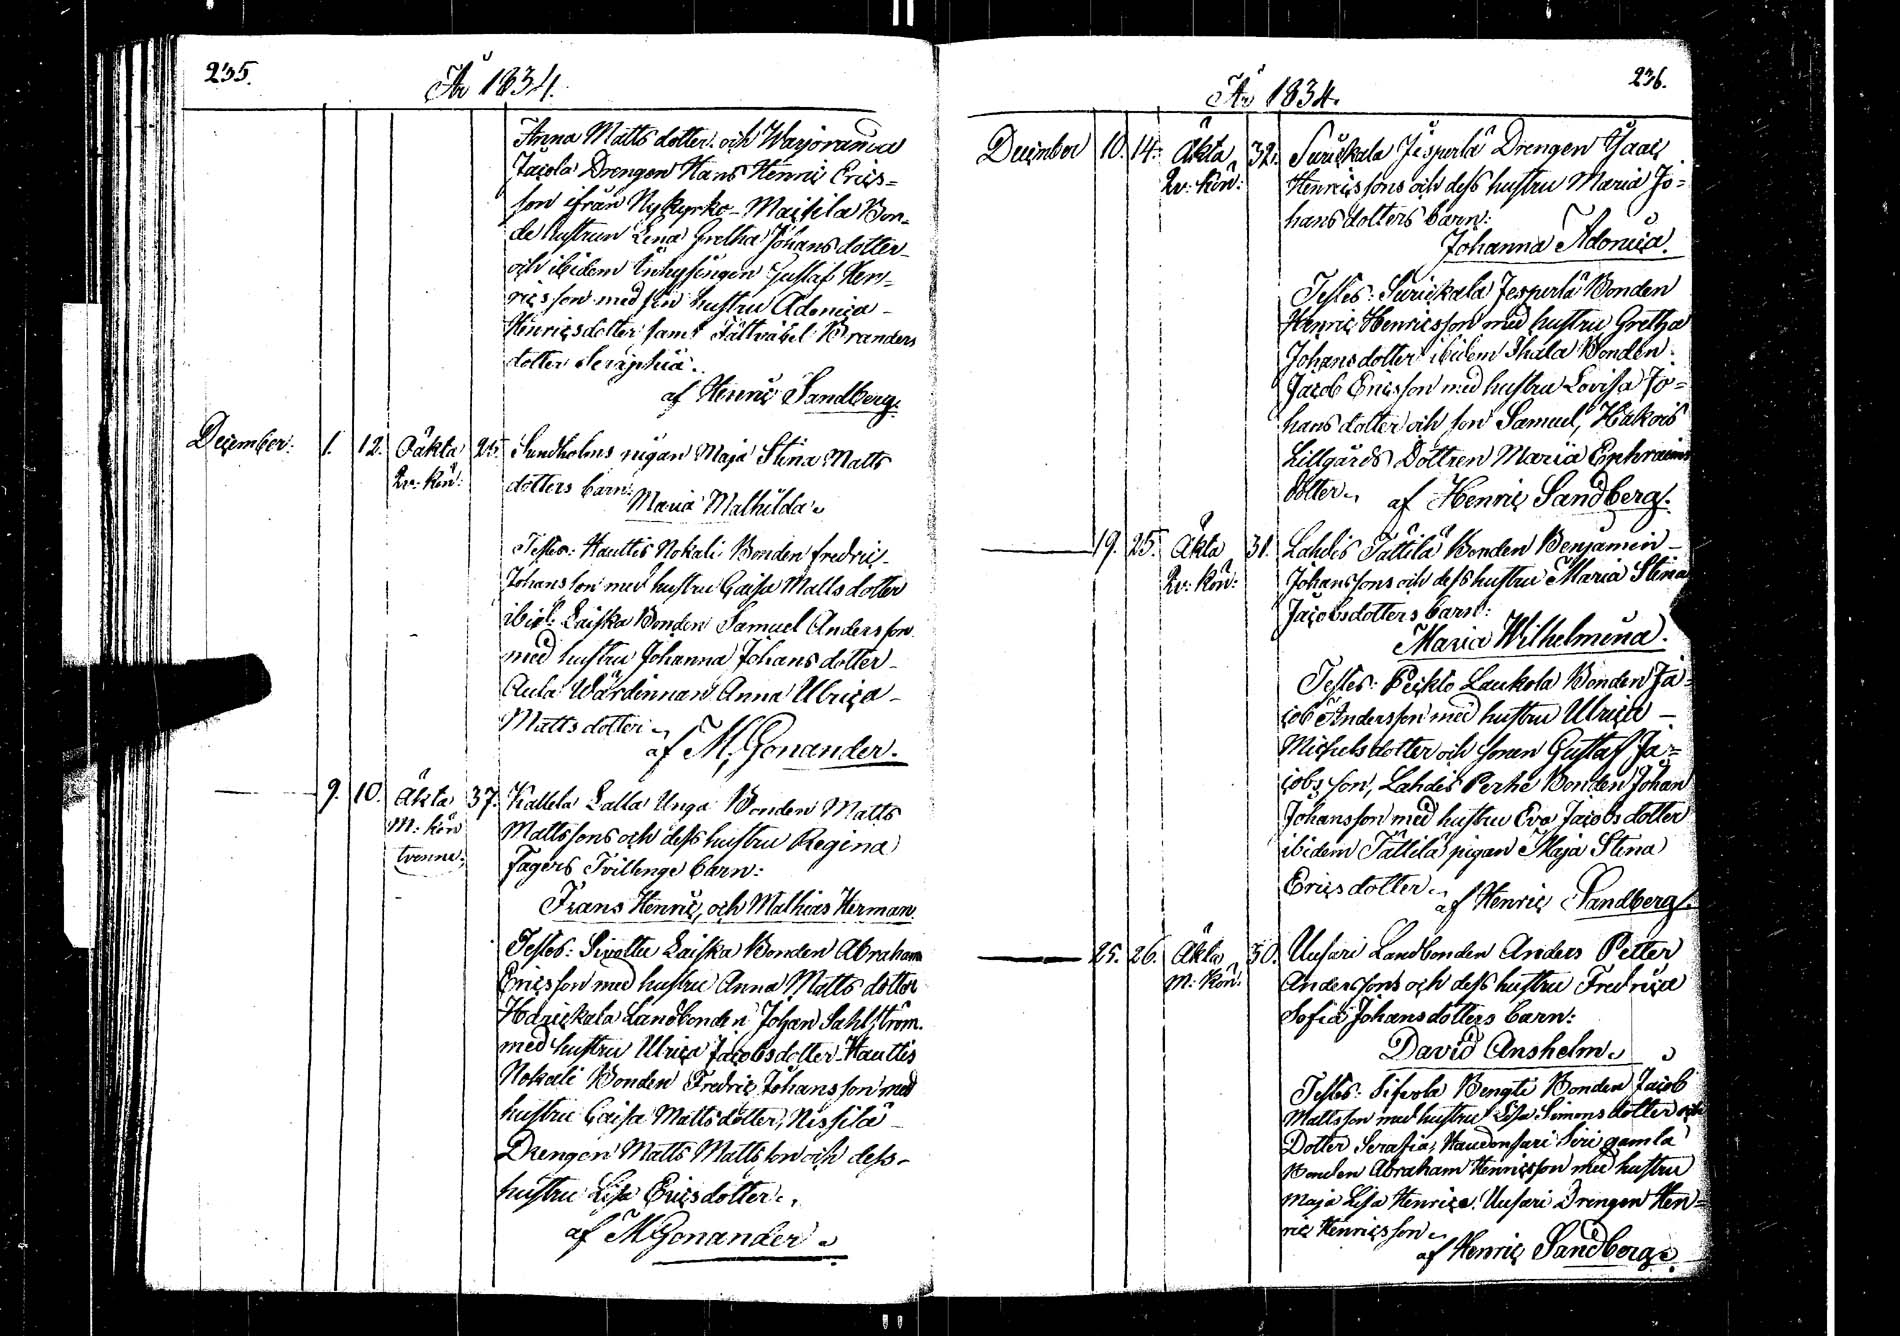 235.
År 1834.
Anna Mattsdotter. och Warjoranda
Jacola Drengen Hans Henric Erics=
son ifrån Nykyrko- Maitila Bon-
de hustrun Lena Gretha Johansdotter
och ibidem Inhysingen Gustaf Hen=
ricsson med sin hustru Adonica
Henricsdotter samt Branders
dotter Seraphia.
af Henric Sandberg.
December. 1. 12. Oäkta 25. Sundholms pigan Maja Stina Matts
Qv: kön: dotters barn:
Maria Mathilda.
Testes: Hauttis Nokali Bonden Fredric
Johansson med hustru Caisa Mattsdotter
ibid: Laiska Bonden Samuel Andersson
med hustru Johanna Johansdotter
Aula Wärdinnan Anna Ulrica
Mattsdotter.
af M. Gonander.
9. 10. Äkta 37. Kallela Lalla Unga Bonden Matts
M: kön Mattssons och dess hustru Regina
tvenne. Fagers Tvillinge barn:
Frans Henric, och Mathias Herman.
Testes: Laiska Bonden Abraham
Ericsson med hustru Anna Matts dotter
Landbonden Johan Sahlström
med hustru Ulrica Jacobsdotter. Hauttis
Nokali Bonden Fredric Johansson med
hustru Caisa Mattsdotter, Nissilä
Drengen Matts Mattsson och dess
hustru Lisa Ericsdotter.
af M Gonander.
236.
År 1834.
December 10. 14. Äkta 32. Surickala Jesperlä Drengen Isaac
Qv: kön: Henricssons och dess hustru Maria Jo=
hans dotters barn:
Johanna Adonica.
Testes: Surickala Jesperlä Bonden
Henric Henricsson med hustru Gretha
Johansdotter ibidem Ihala Bonden
Jacob Ericsson med hustru Lovisa Jo=
hans dotter och son Samuel, Kakois
Lillgårds Dottren Maria Ephraims
dotter. af Henric Sandberg.
19. 25. Äkta 31. Lahdis Tättilä Bonden Benjamin
Qv: kön: Johanssons och dess hustru Maria Stina
Jacobsdotters barn:
Maria Wilhelmina.
Testes: Peickto Laukola Bonden Ja=
cob Andersson med hustru Ulrica
Michelsdotter och sonen Gustaf Ja=
cobsson, Lahdis Perhe Bonden Johan
Johansson med hustru Eva Jacobsdotter
ibidem Tättilä pigan Maja Stina
Ericsdotter. af Henric Sandberg.
25. 26. Äkta 30. Uusari Landbonden Anders Petter
M: kön: Anderssons och dess hustru Fredrica
Sofia Johansdotters barn:
David Anshelm.
Testes: Siferla Bengti Bonden Jacob
Mattsson med hustru Lisa Simonsdotter och
Dotter Serafia, Haudonsari Siri gamla
Bonden Abraham Henricsson med hustru
Maja Lisa Henrics. Uusari Drengen Hen=
ric Henricsson.
af Henric Sandberg.